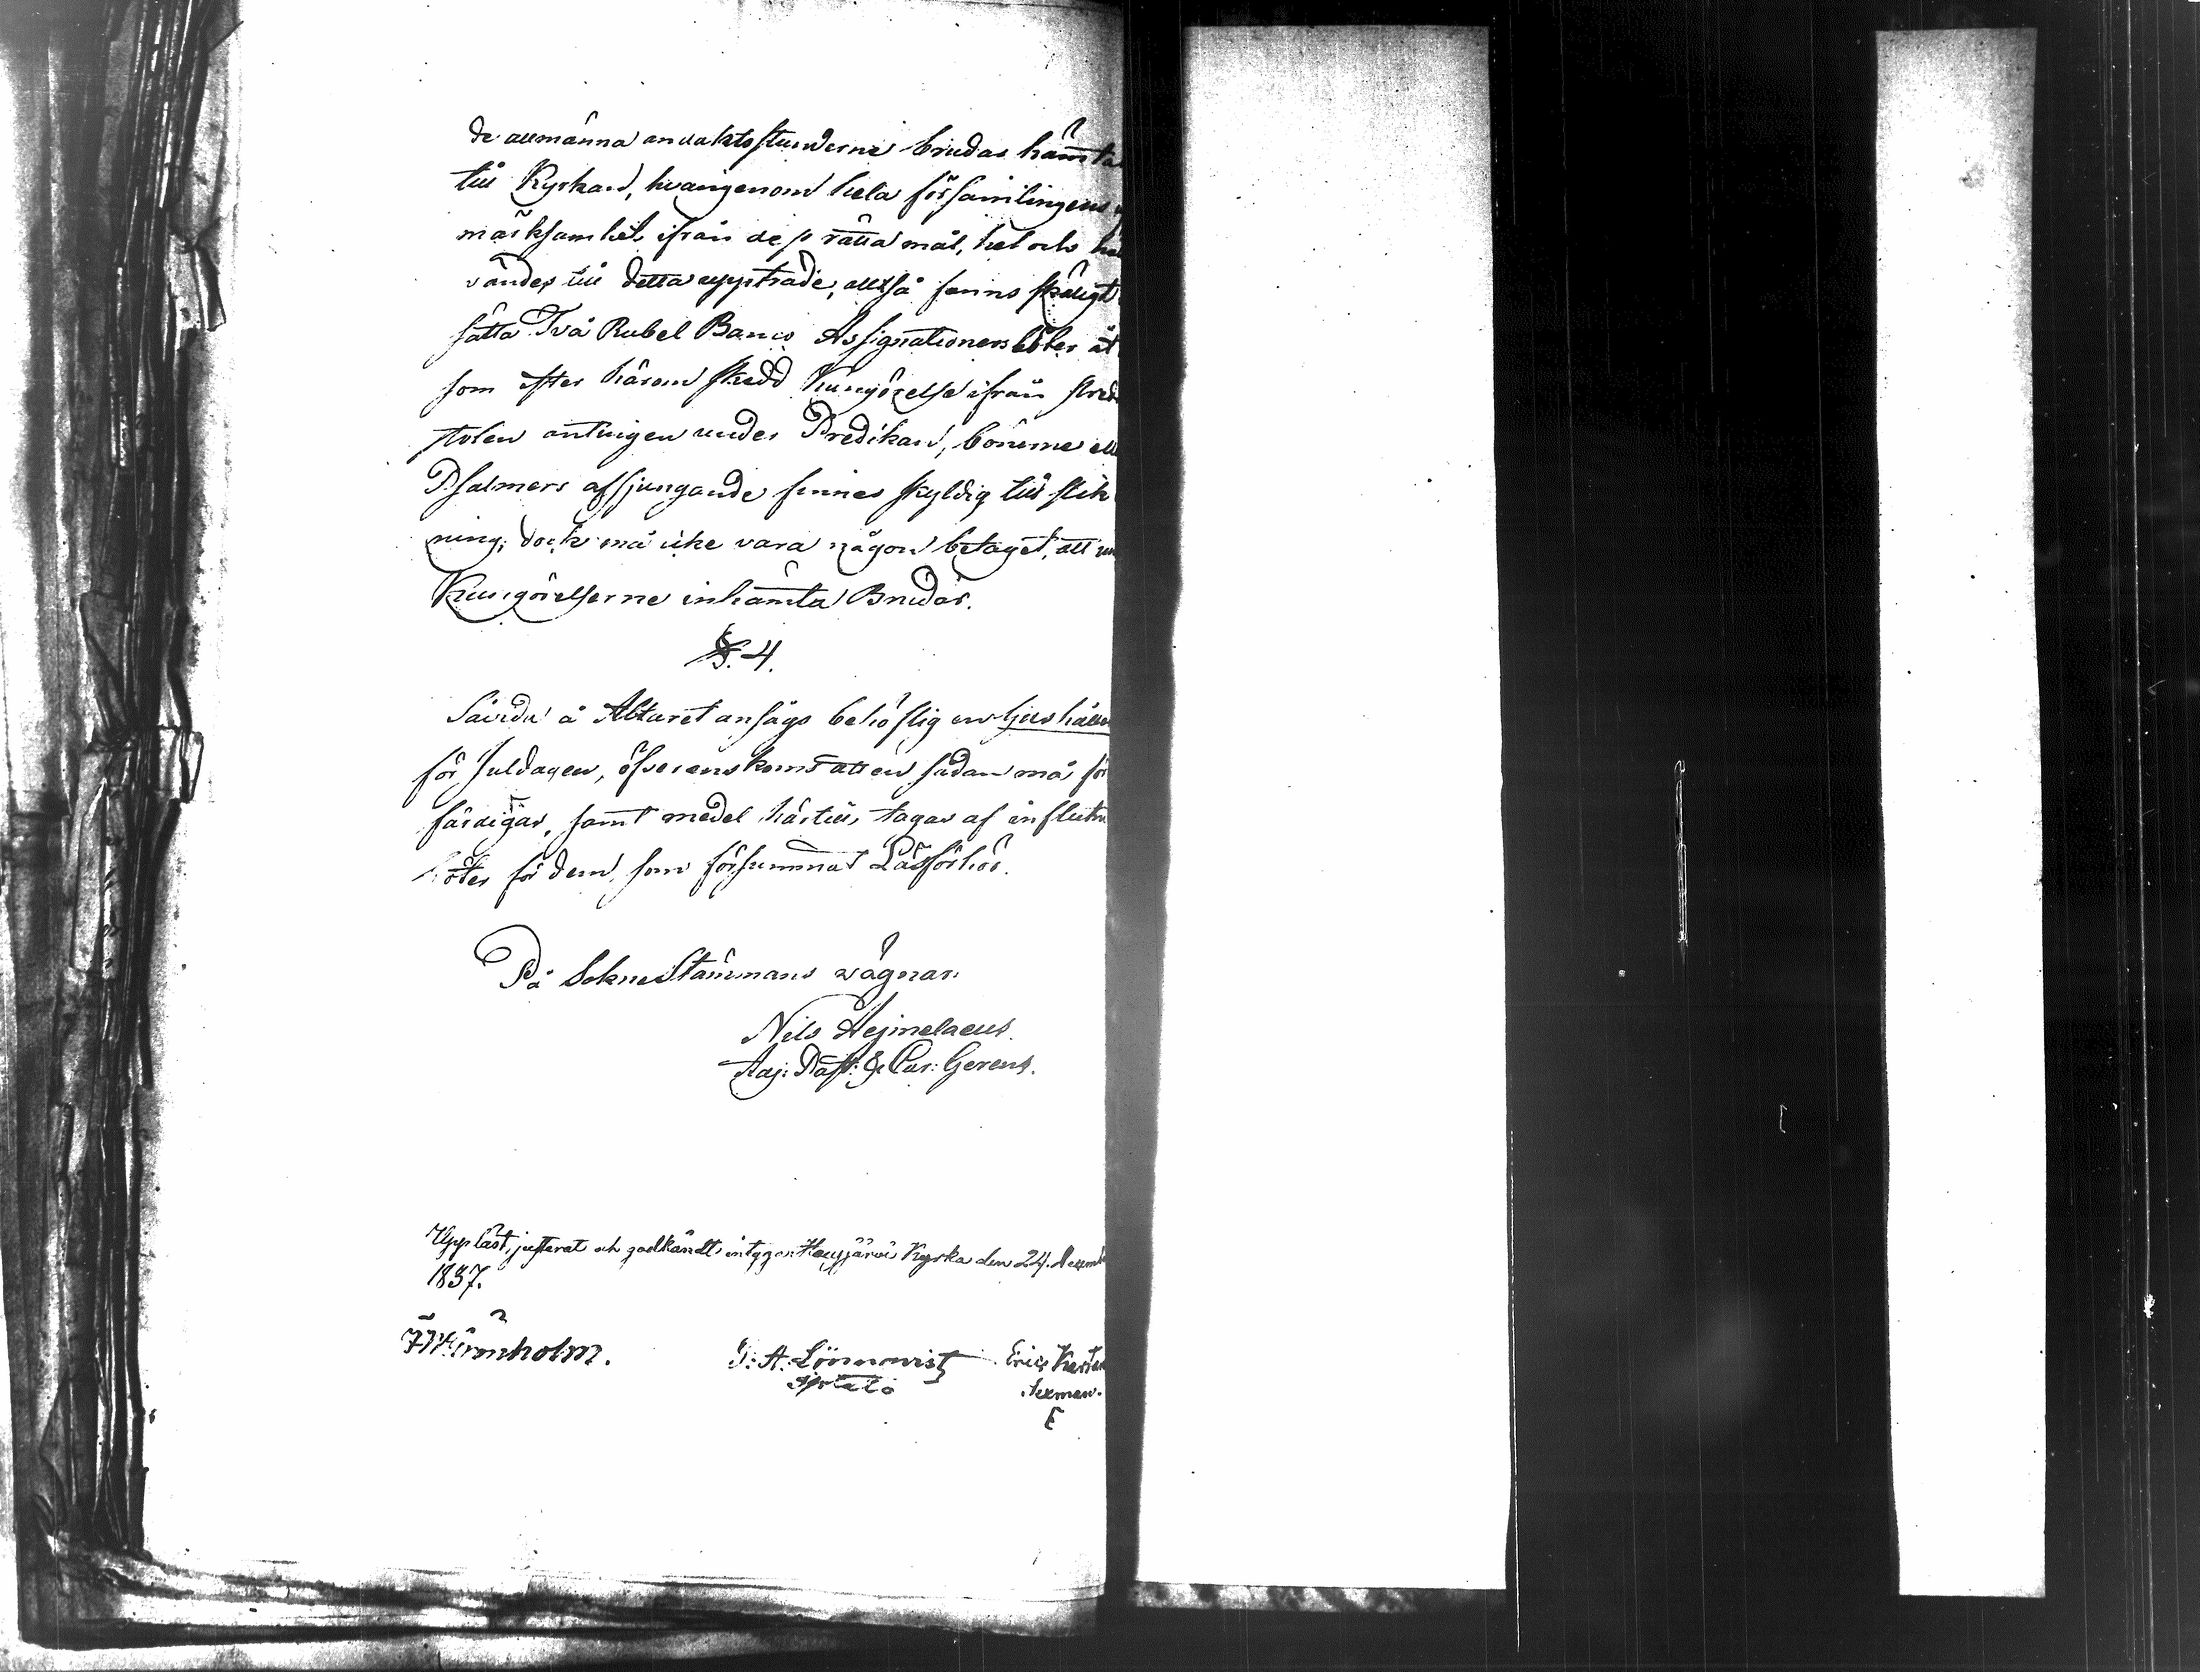 de allmänna andaktsstunderne brudar hämta
till Kyrkan, hvarigenom hela församlingens
märksamhet ifrån dess rätta mål, helt och hål
vändes till detta uppträde, alltså fanns skäligt
sätta Två Rubel Banco Assignationers böter åt
som efter härom skedd Kungörelse ifrån Pred
stolen antingen under Predikan, bönerne ell
Psalmers afsjungande finnes skyldig till slik
ning; dock må icke vara någon betaget, att un
Kungörelserne inhämta Brudar.
§. 4.
Såvida å Altaret ansågs behöflig en Ljushållar
för Juldagen, öfverenskoms att en sådan må för
färdigas, samt medel härtill, tagas af influtn
böter för dem, som försummat Läsförhör.
På SokneStämmans vägnar
Nils Hejmelaeus.
Adj: Past: & Cur: Gerens.
Uppläst, justerat och godkändt; intyga: Hausjärvi Kyrka den 24. Decemb
1837.
holm.
G: A: Lönnqvist
Eric
Sexman.